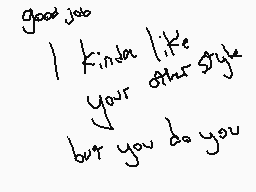 good job
I kinda like
your other style
but you do you